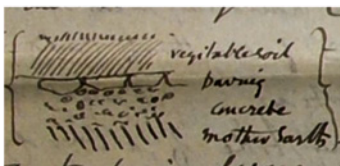 vegitable soil
paving
concrete
mother Earth